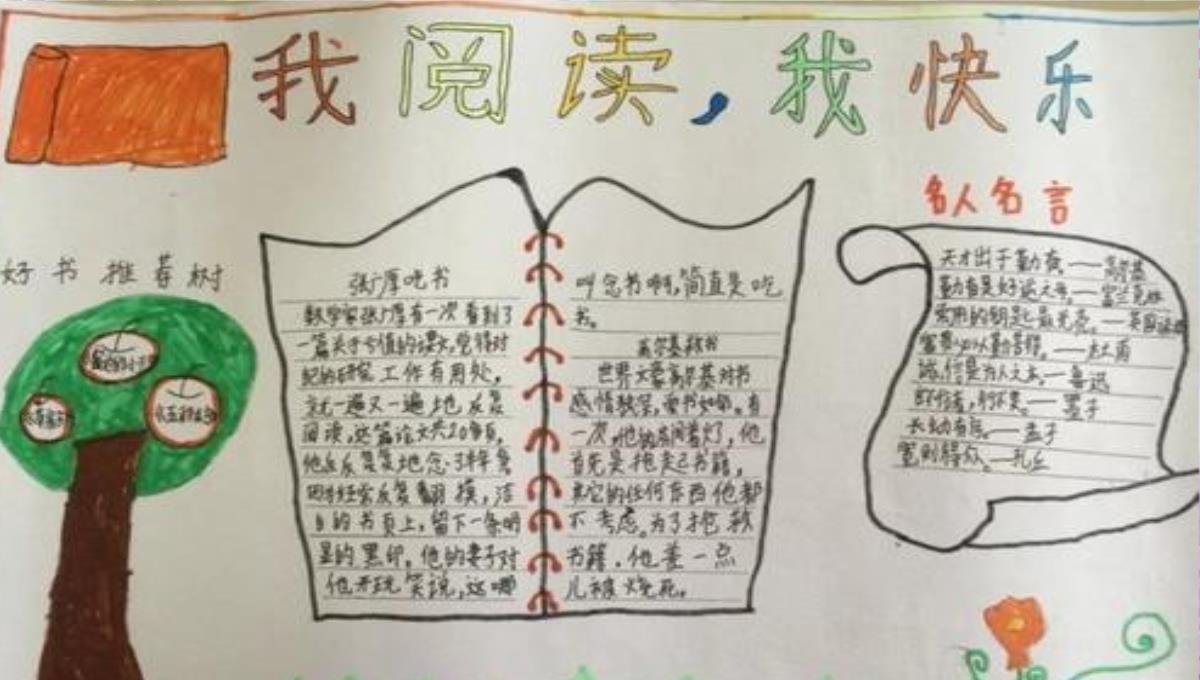 我阅读，我快乐
好书推荐树
张广厚吃书
数学家张广厚有一次看到了
一篇关于亏值的论文，觉得对
纪的研究工作有用处，
就一遍又一遍地反复
阅读，这篇论文共20多页，
他反反复复地念了半年多
因为经常反复翻摸，洁
白的书页上，留下一条明
显的黑印，他的妻子对
他开玩笑说，这哪
叫念书啊，简直是吃
书。
高尔基救书
世界文豪高尔基对书
感情独深，爱书如命。有
一次，他的房间着火了，他
首先是抱起书籍，
其它的任何东西他都
不考虑。为了抢救
书籍，他差一点
儿被烧死。
名人名言
天才出于勤奋。——高尔基
勤奋是好运之母。——富兰克林
常用的钥匙最光亮。——英国谚语
富贵必从勤苦得。——杜甫
诚信是为人之本。——鲁迅
，行不果。——墨子
——孟子
宽则得众。——孔丘